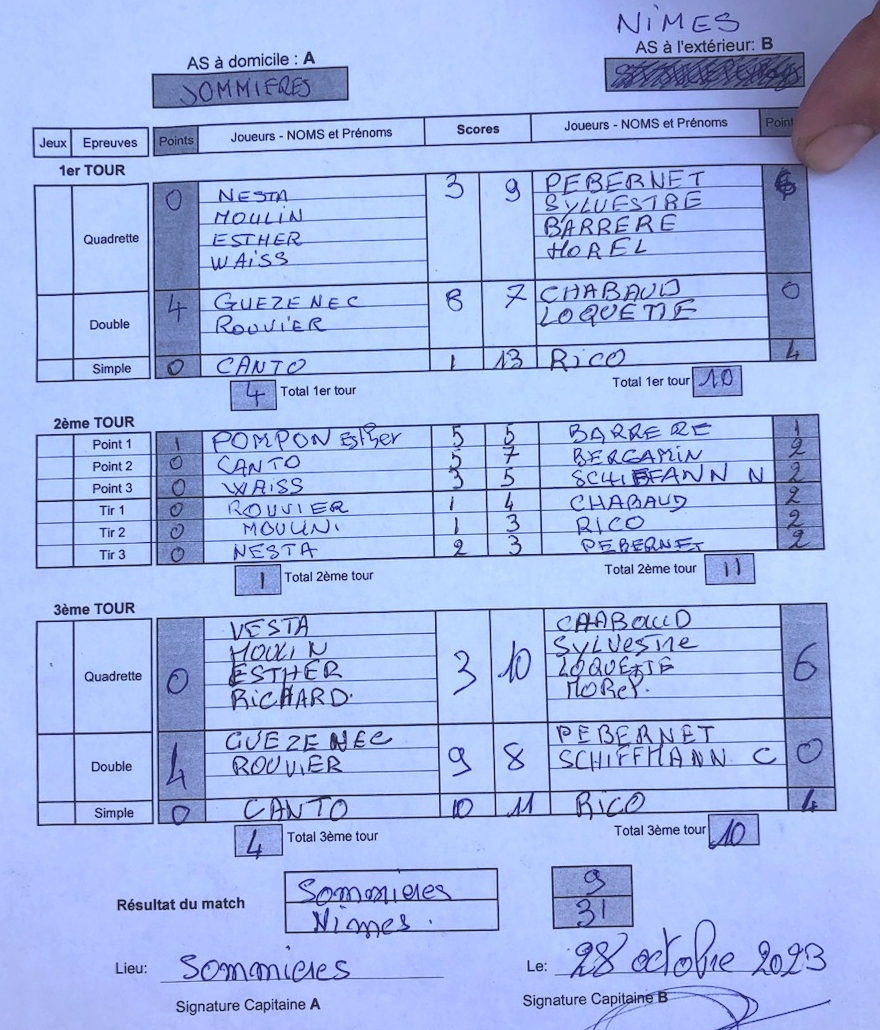 NÎMES
AS à domicile : A
AS à l'extérieur: B
SOMMIERES
Jeux Epreuves Points Joueurs - NOMS et Prénoms Scores Joueurs - NOMS et Prénoms Point
1er TOUR
Quadrette 0 NESTA 3 9 PEBERNET 6
MOULIN SYLVESTRE
ESTHER BARRERE
WAISS HOREL
Double 4 GUEZENEC 8 7 CHABAUD 0
ROUVIER LOQUETTE
Simple 0 CANTO 1 13 RICO 4
4 Total 1er tour Total 1er tour 10
2ème TOUR
Point 1 1 POMPON Esther 5 5 BARRERE 1
Point 2 0 CANTO 5 7 BERGAMIN 2
Point 3 0 WAISS 3 5 SCHIFFANN N 2
Tir 1 0 ROUVIER 1 4 CHABAUD 2
Tir 2 0 MOULINI 1 3 RICO 2
Tir 3 0 NESTA 2 3 PEBERNET 2
1 Total 2ème tour Total 2ème tour 11
3ème TOUR
Quadrette 0 VESTA 3 10 CHABAUD 6
MOULIN SYLVESTRE
ESTHER LOQUETTE
RICHARD. MOREL.
Double 4 GUEZENEC 9 8 PEBERNET 0
ROUVIER SCHIFFMANN C
Simple 0 CANTO 10 11 RICO 4
4 Total 3ème tour Total 3ème tour 10
Résultat du match Sommieres 9
Nimes. 31
Lieu: Sommieres Le: 28 octobre 2023
Signature Capitaine A Signature Capitaine B